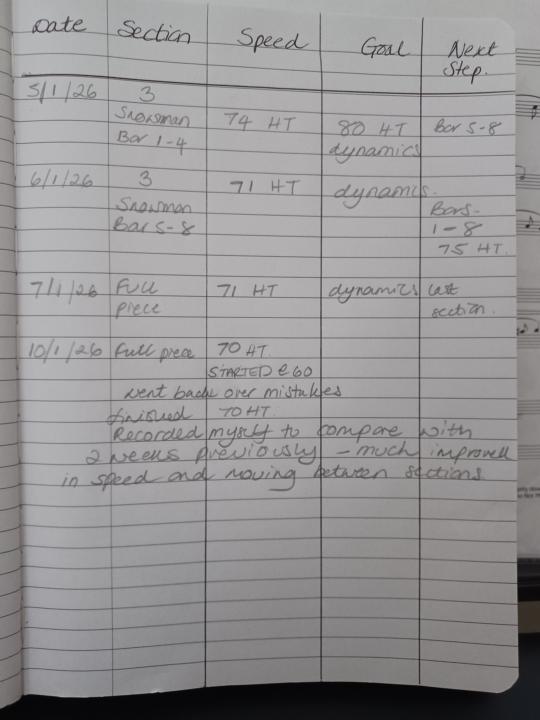 Date Section Speed Goal Next Step.
5/1/26 3
Snowman 74 HT 80 HT Bar 5-8
Bar 1-4 dynamics
6/1/26 3 71 HT dynamics.
Snowman Bars-
Bar 5-8 1-8
75 HT.
7/1/26 Full 71 HT dynamics last
piece section.
10/1/26 Full piece 70 HT.
STARTED @ 60
went back over mistakes
finished 70 HT.
Recorded myself to compare with
2 weeks previously - much improved
in speed and moving between sections